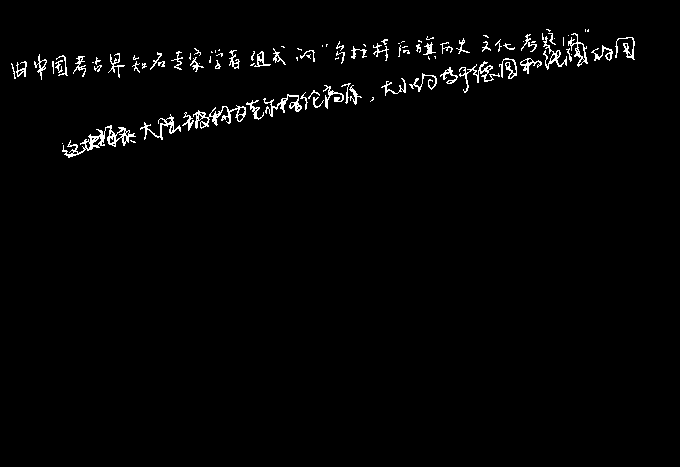 由中国考古界知名专家学者组成的“乌拉特后旗历史文化考察团”
这块海底大陆被称为克尔格伦高原，大小约等于德国和法国的国